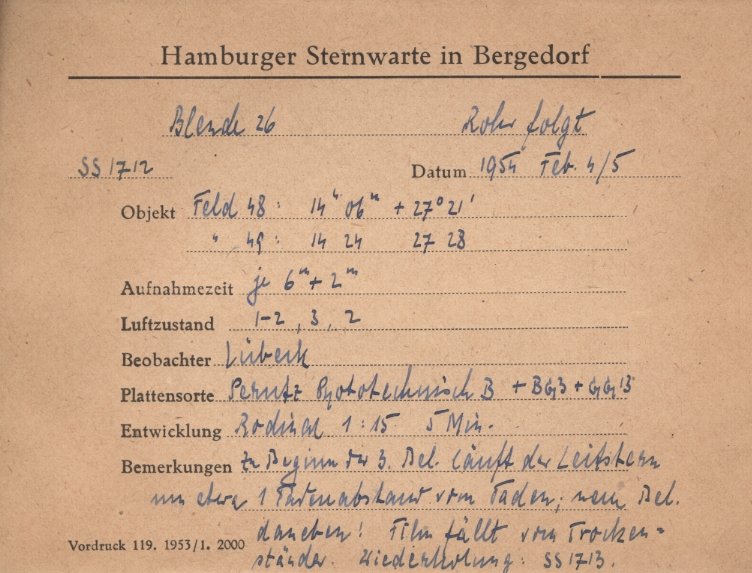 Hamburger Sternwarte in Bergedorf
Blende 26 Rohr folgt
SS 1712 Datum 1954 Feb. 4/5
Objekt Feld 48: 14h 06m + 27° 21'
" 49: 14 24 27 28
Aufnahmezeit je 6m + 2m
Luftzustand 1-2, 3, 2
Beobachter Lübeck
Plattensorte Perutz Phototechnisch B + BG3 + GG13
Entwicklung Rodinal 1:15 5 Min.
Bemerkungen Zu Beginn der 3. Bel. läuft der Leitstern
um etwa 1 Fadenabstand vom Faden; neue Bel.
daneben! Film fällt vom Trocken=
Vordruck 119. 1953/1. 2000 ständer. Wiederholung: SS 1713.